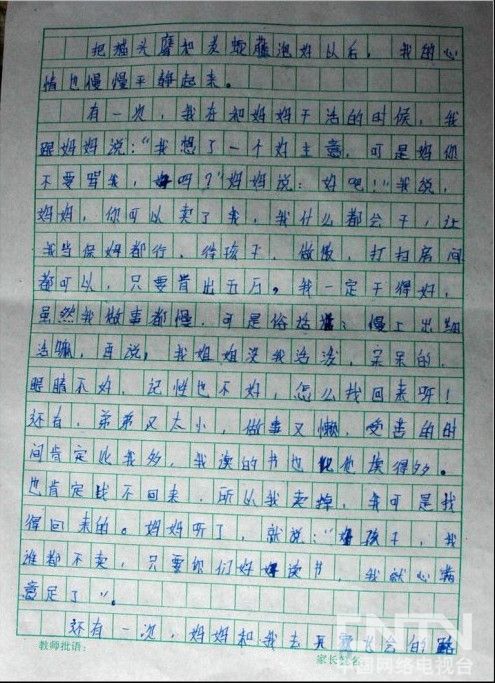 把猫头鹰和炎蛇藤泡好以后，我的心
情也慢慢平静起来。
有一次，我在和妈妈干活的时候，我
跟妈妈说："我想了一个好主意，可是妈你
不要骂我，好吗？"妈妈说：好吧！"我说，
妈妈，你可以卖了我，我什么都会干，让
我当保姆都行，待孩子，做饭，打扫房间
都可以，只要肯出五万。我一定干得好，
虽然我做事都慢，可是俗话讲：慢工出细
活嘛，再说，我姐姐没我活泼，呆呆的，
眼睛不好，记性也不好，怎么找回来呀！
还有，弟弟又太小，做事又懒，受苦的时
间肯定比我多，我读的书也比他读得多。
也肯定找不回来，所以我卖掉，我可是找
得回来的。妈妈听了，就说："好孩子，我
谁都不卖，只要你们好好读书，我就心满
意足了"。
还有一次，妈妈和我去天飞会的路
教师批语：
家长签名
CNTV
中国网络电视台